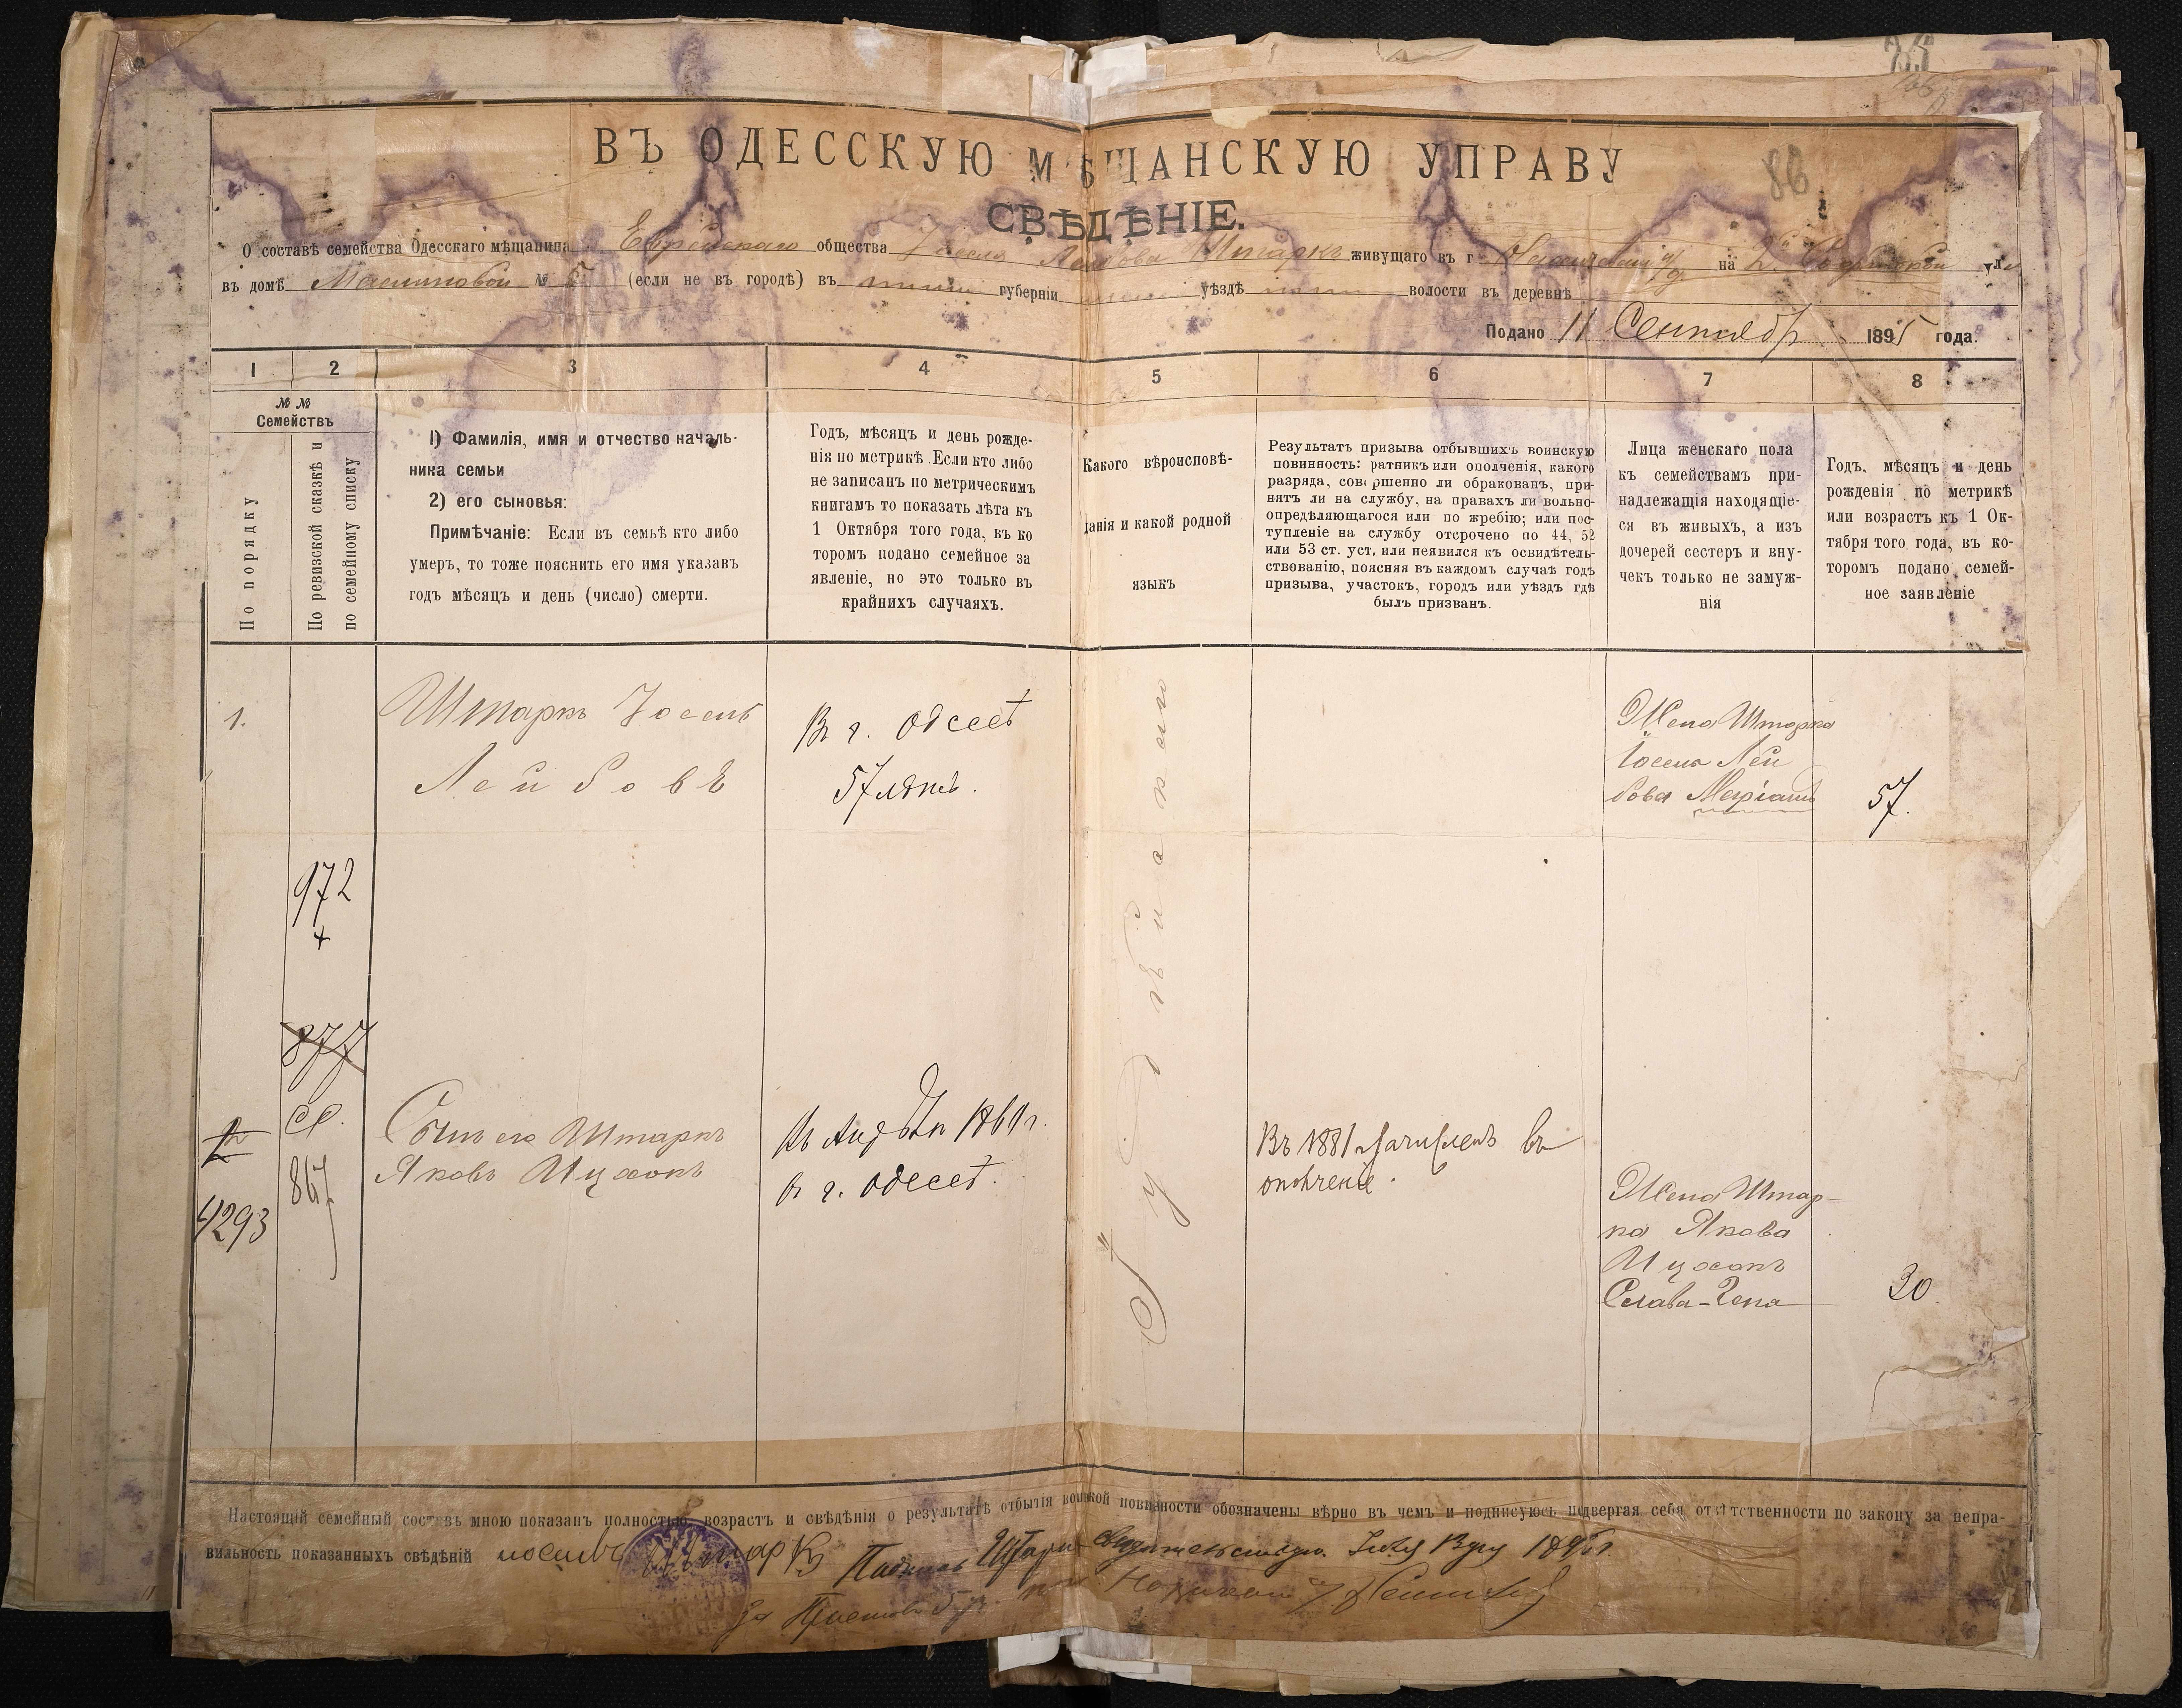 ВЪ ОДЕССКУЮ МѢЩАНСКУЮ УПРАВУ
88
СВѢДѢНІЕ.
О составѣ семейства Одесскаго мѣщанина Еврейскаго общества Іосела Лейбова Штаркъ живущаго въ г на
въ домѣ Маслиновой № 5 (если не въ городѣ) въ губерніи уѣздѣ волости въ деревнѣ
Подано 11 Сентября 1895 года.
1 2 3 4 5 6 7 8
№ №
Семействъ
По порядку
По ревизской сказкѣ и
по семейному списку
1) Фамилія, имя и отчество началь-
ника семьи
2) его сыновья:
Примѣчаніе: Если въ семьѣ кто либо
умеръ, то тоже пояснить его имя указавъ
годъ мѣсяцъ и день (число) смерти.
Годъ, мѣсяцъ и день рожде-
нія по метрикѣ. Если кто либо
не записанъ по метрическимъ
книгамъ то показать лѣта къ
1 Октября того года, въ ко
торомъ подано семейное за
явленіе, но это только въ
крайнихъ случаяхъ.
Какого вѣроисповѣ-
данія и какой родной
языкъ
Результатъ призыва отбывшихъ воинскую
повинность: ратникъ или ополченія, какого
разряда, совершенно ли обракованъ, при-
нятъ ли на службу, на правахъ ли вольно-
опредѣляющагося или по жребію; или пос-
тупленіе на службу отсрочено по 44, 52
или 53 ст. уст. или неявился къ освидѣтель-
ствованію, поясняя въ каждомъ случаѣ годъ
призыва, участокъ, городъ или уѣздъ гдѣ
былъ призванъ.
Лица женскаго пола
къ семействамъ при-
надлежащія находящіе-
ся въ живыхъ, а изъ
дочерей сестеръ и вну-
чекъ только не замуж-
нія
Годъ, мѣсяцъ и день
рожденія по метрикѣ
или возрастъ къ 1 Ок-
тября того года, въ ко-
торомъ подано семей-
ное заявленіе
1.
Штаркъ Іосель
Лейбовъ
Въ г. Одессѣ
57 лѣтъ.
Іудейскаго
Жена Штарка
Іосела Лей
бова Маріамъ
57.
972
+
877
2
4293
867
Сынъ его Штаркъ
Яковъ Ицхокъ
1860 г.
в г. Одессѣ.
Въ 1881 зачисленъ въ
ополченіе.
Жена Штар-
ка Якова
Ицхокъ
Слава-Гена
30
Настоящій семейный составъ мною показанъ полностью, возрастъ и свѣдѣнія о результатѣ отбытія воинской повинности обозначены вѣрно въ чемъ и подписуюсь подвергая себя отвѣтственности по закону за непра-
вильность показанныхъ свѣдѣній Штаркъ Подпись Штарка 1895 г.
За Пристава